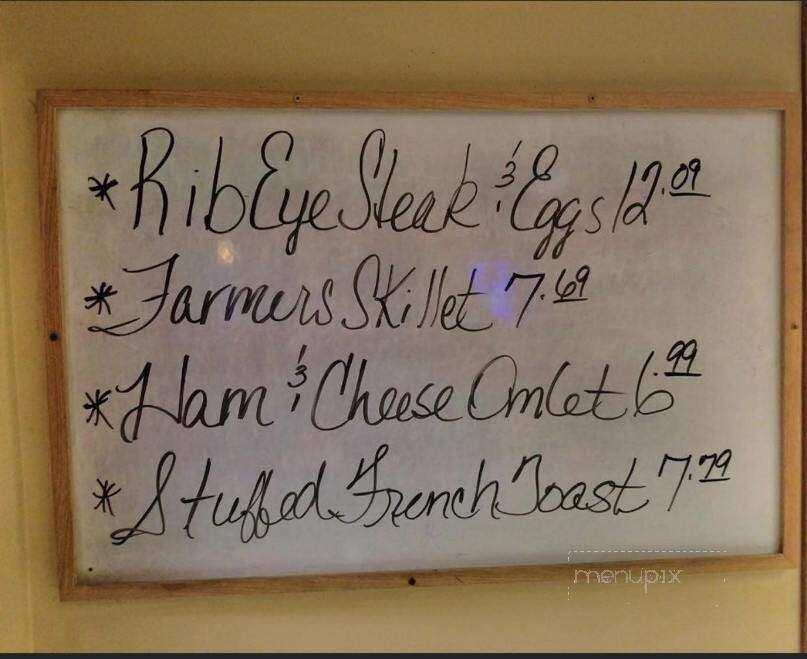 * Rib Eye Steak & Eggs 12.09
* Farmers Skillet 7.69
* Ham & Cheese Omlet 6.99
* Stuffed French Toast 7.79
menupix